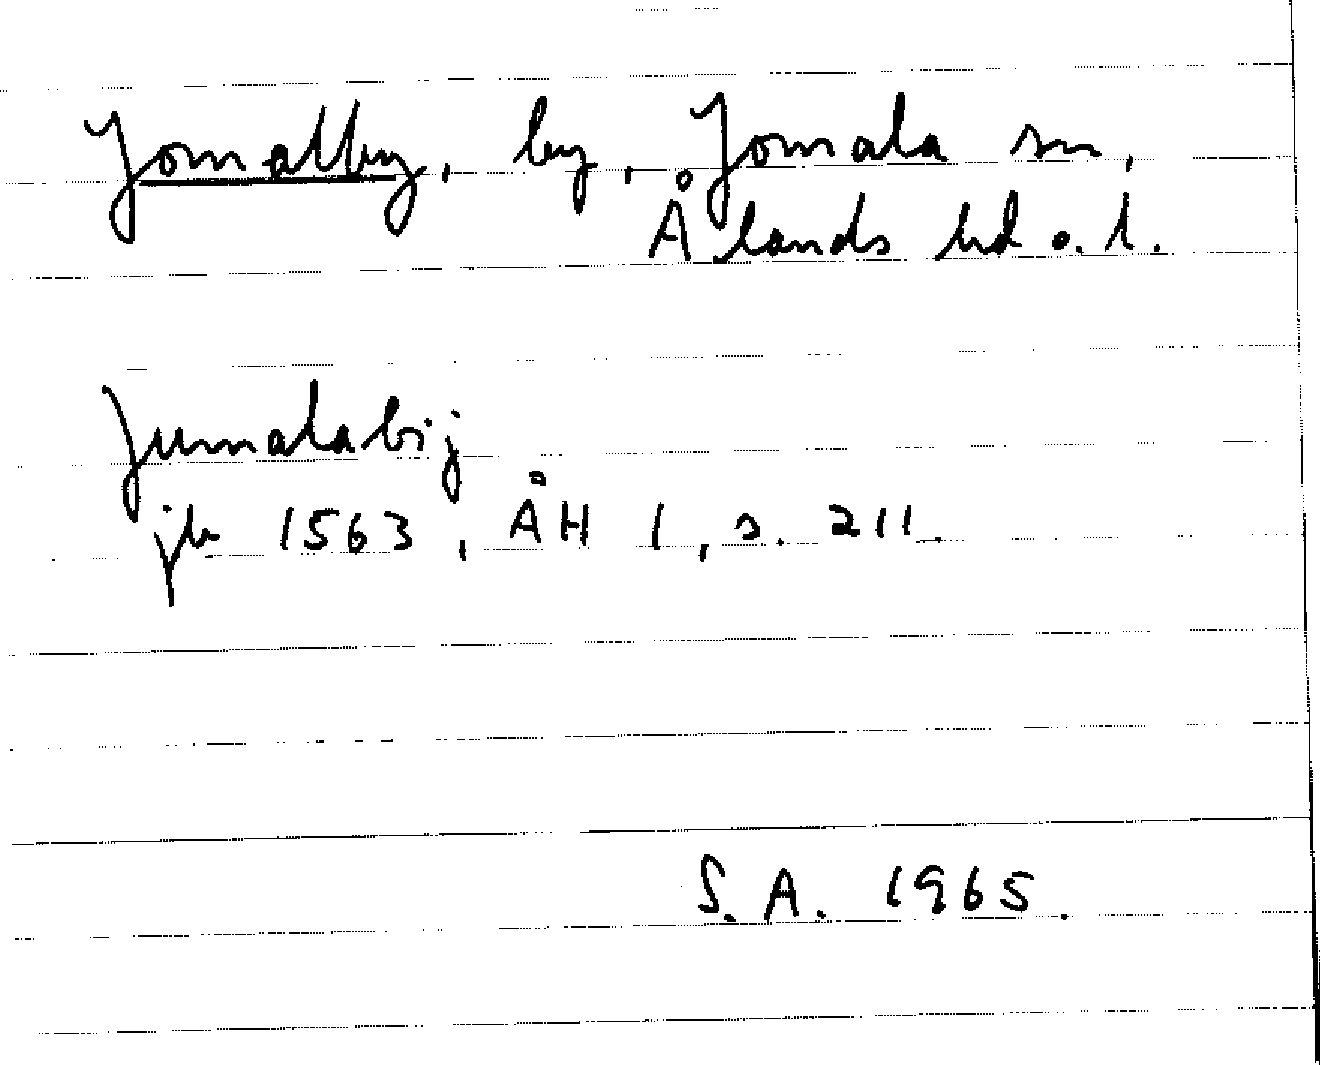 Jomalby, by, Jomala sn,
Ålands hd o. l.
Jumalabij
jb 1563, ÅH 1, s. 211.
S.A. 1965.